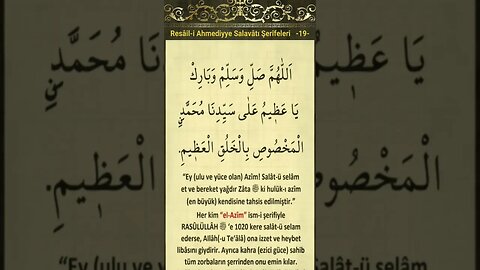 Resâil-i Ahmediyye Salavâtı Şerifeleri -19-
اَللّٰهُمَّ صَلِّ وَسَلِّمْ وَبَارِكْ
يَا عَظِيمُ عَلٰى سَيِّدِنَا مُحَمَّدٍ
الْمَخْصُوصِ بِالْخَلُقِ الْعَظِيمِ.
"Ey (ulu ve yüce olan) Azîm! Salât-ü selâm
et ve bereket yağdır Zâta ﷺ ki hulük-ı azîm
(en büyük) kendisine tahsis edilmiştir."
Her kim "el-Azîm" ism-i şerifiyle
RASÛLÜLLÂH ﷺ'e 1020 kere salât-ü selam
ederse, Allâh(-u Te'âlâ) ona izzet ve heybet
libâsını giydirir. Ayrıca kahra (ezici güce) sahib
tüm zorbaların şerrinden onu emin kılar.